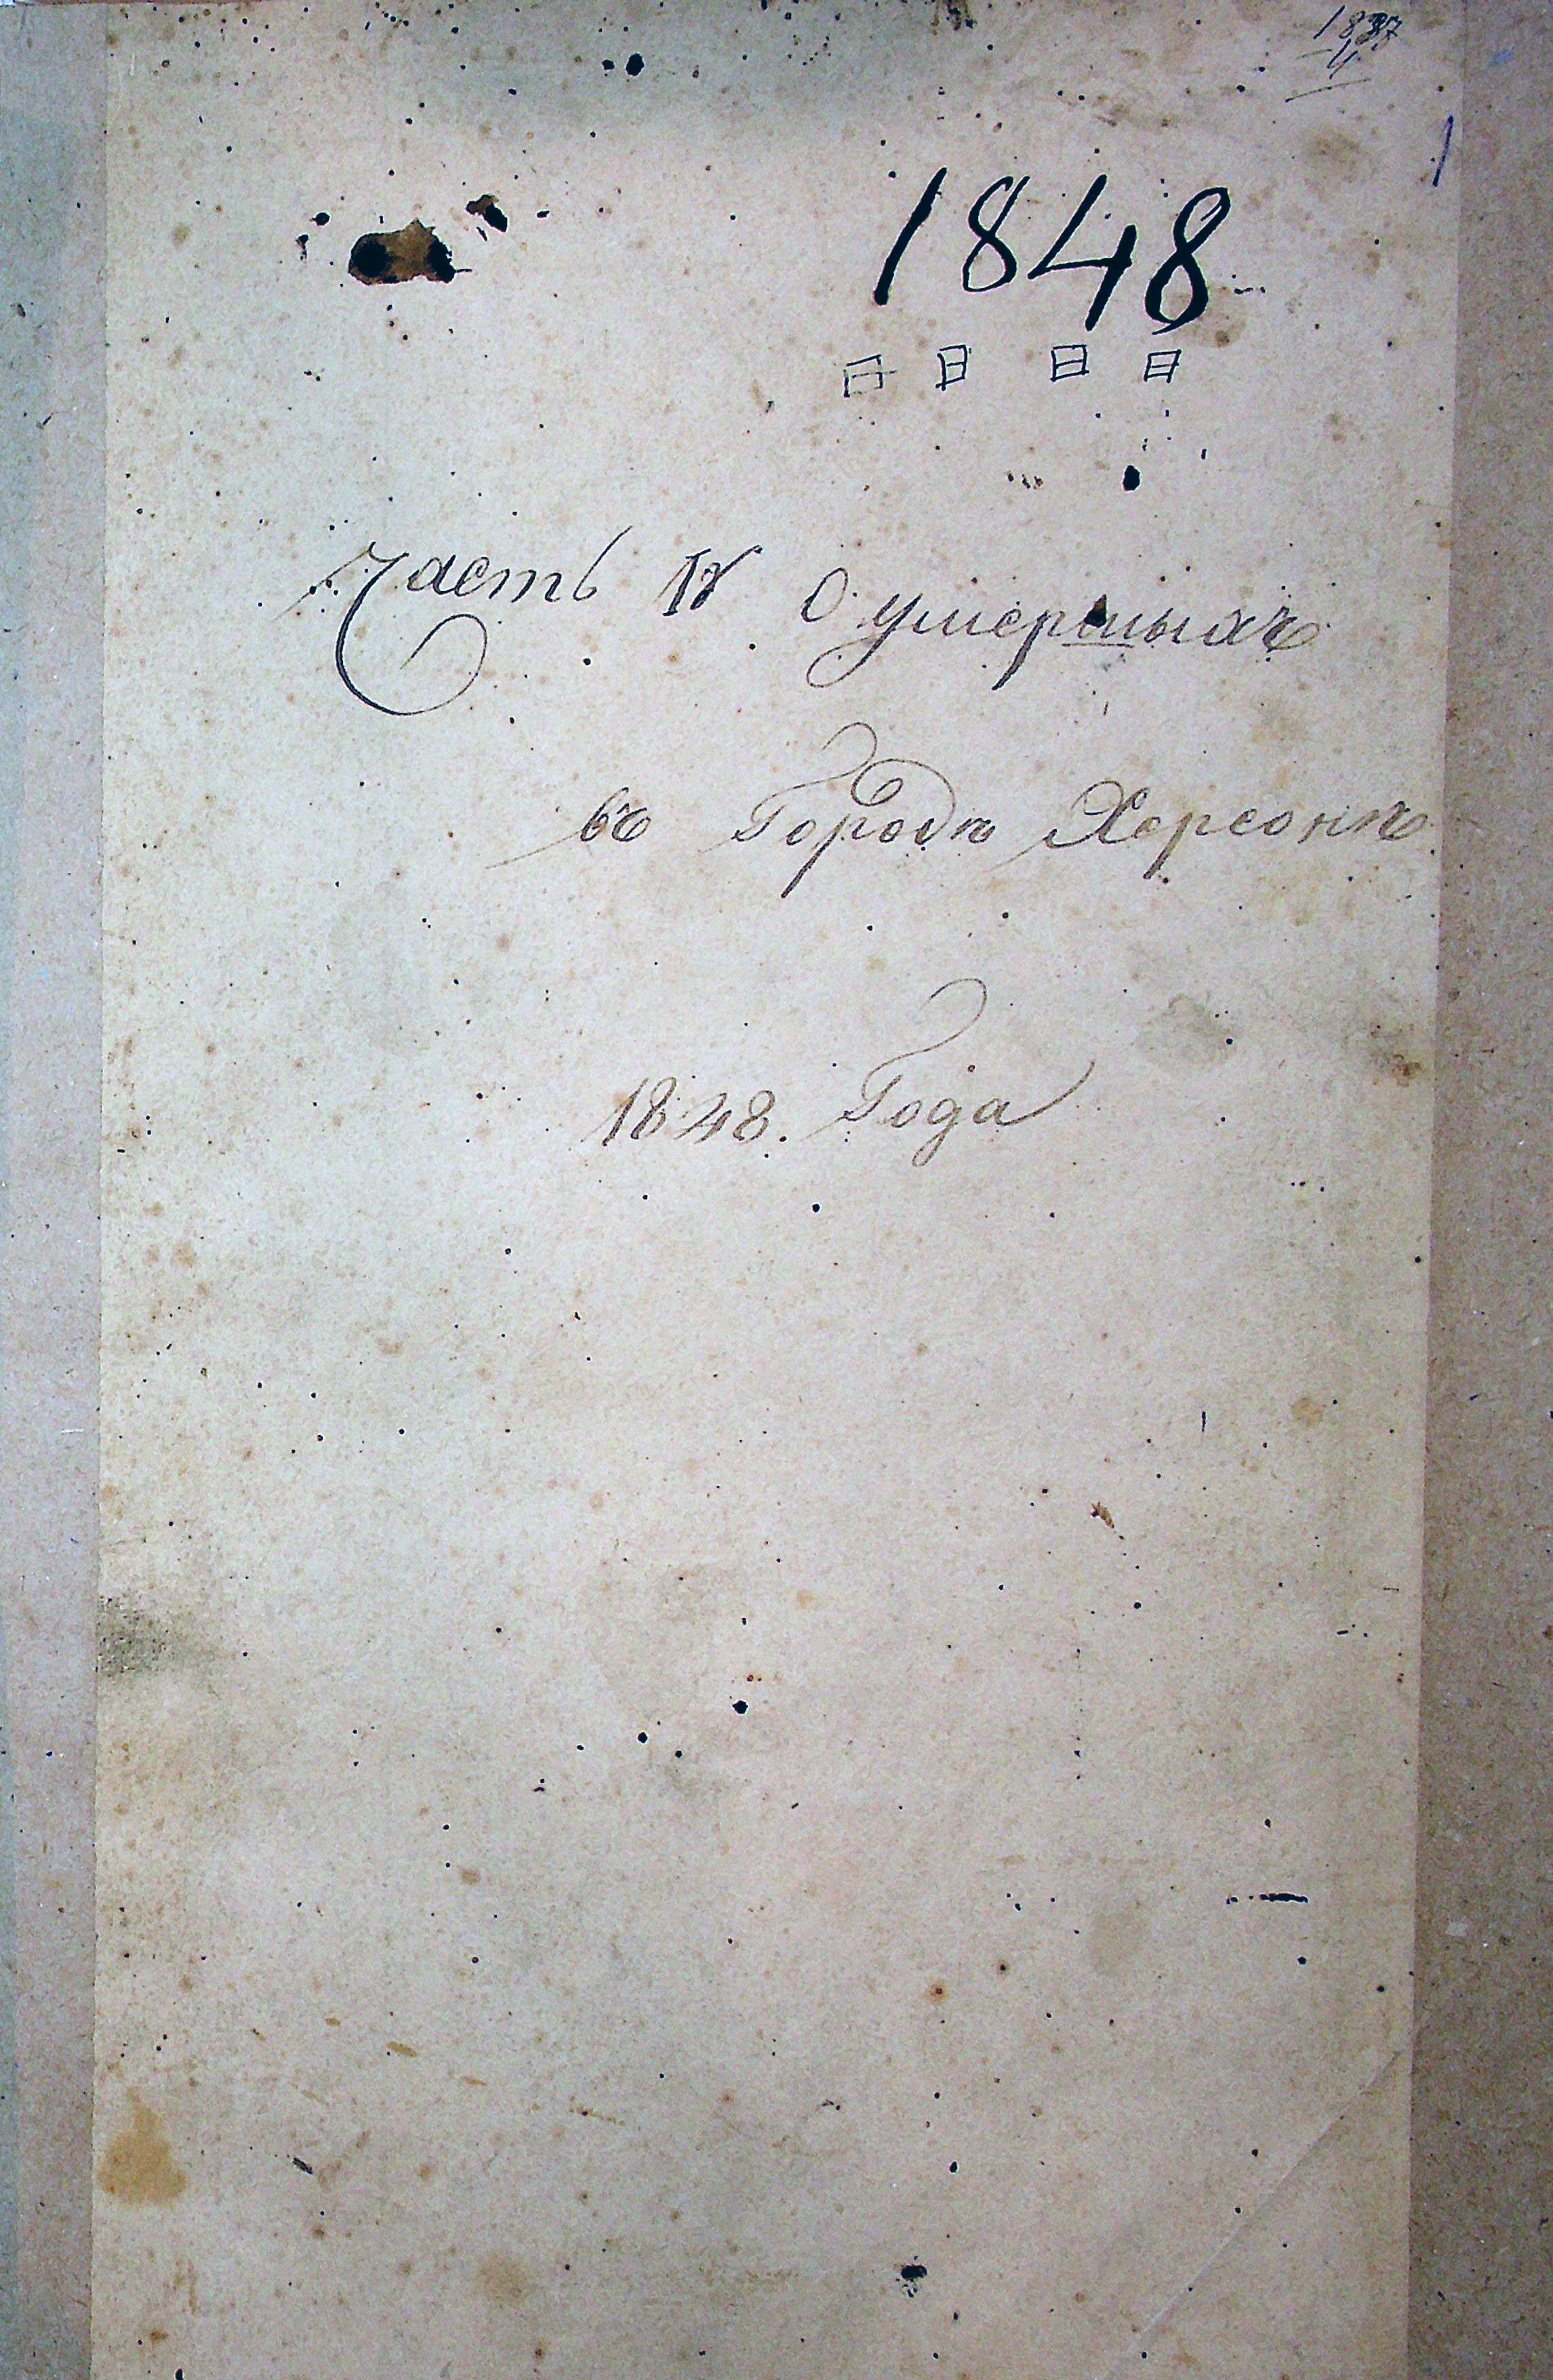 1
1848
Часть IV О умершихъ
въ Городѣ Херсонѣ
1848. Года